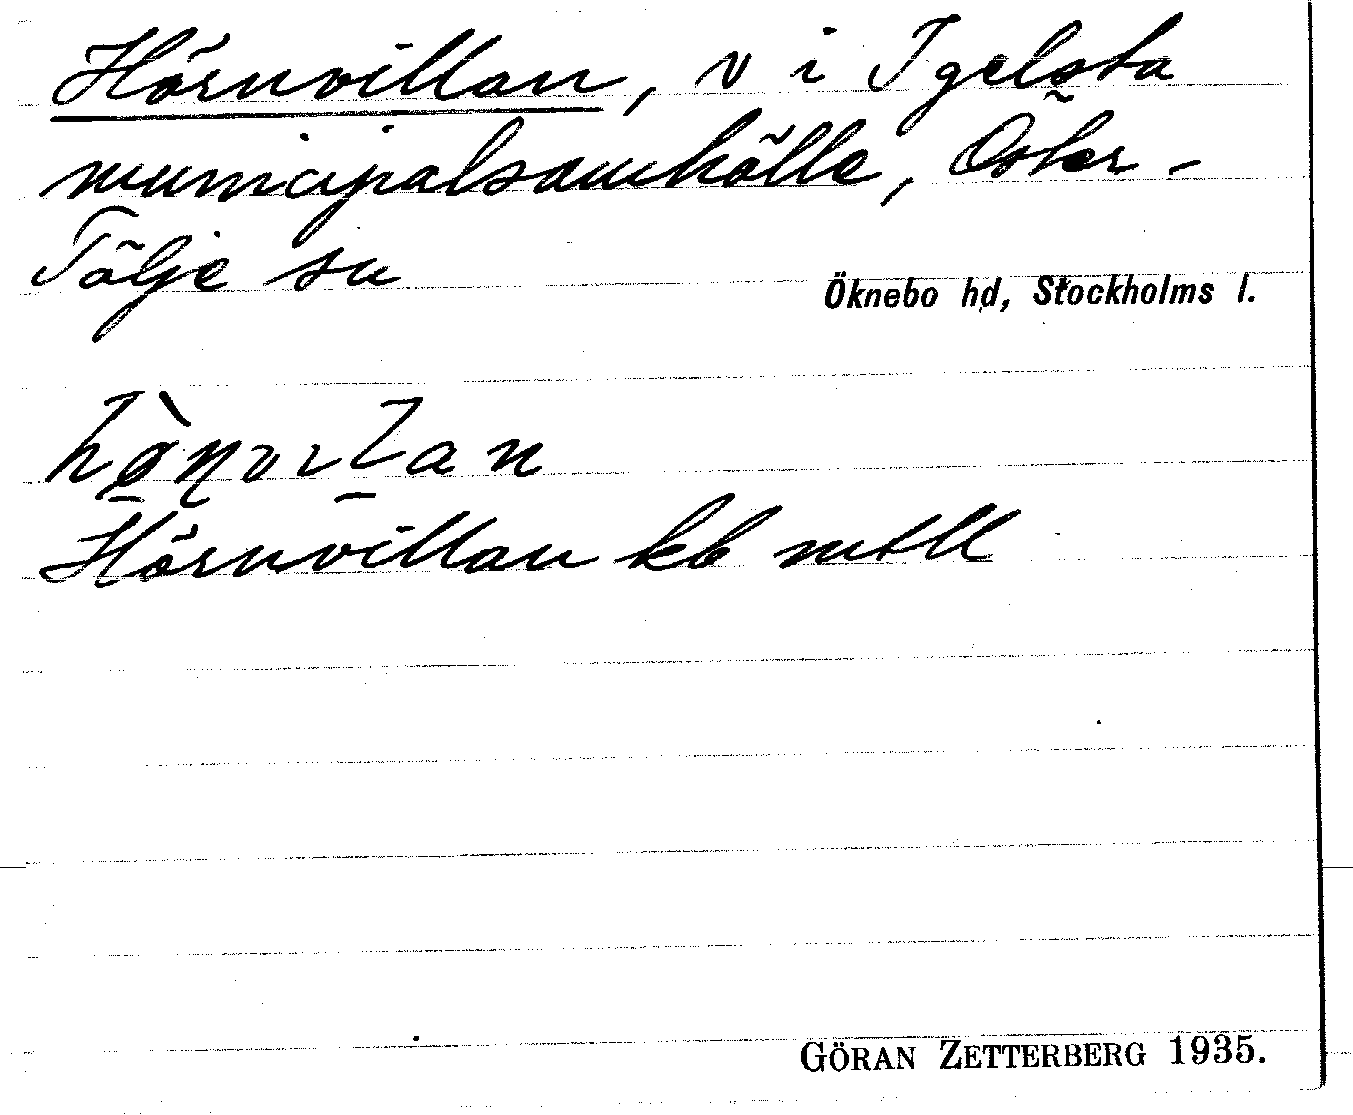 Hörnvillan, v i Igelsta
municipalsamhälle, Öster-
Tälje sn
Öknebo hd, Stockholms l.
Hörnvillan kb mtll
GÖRAN ZETTERBERG 1935.